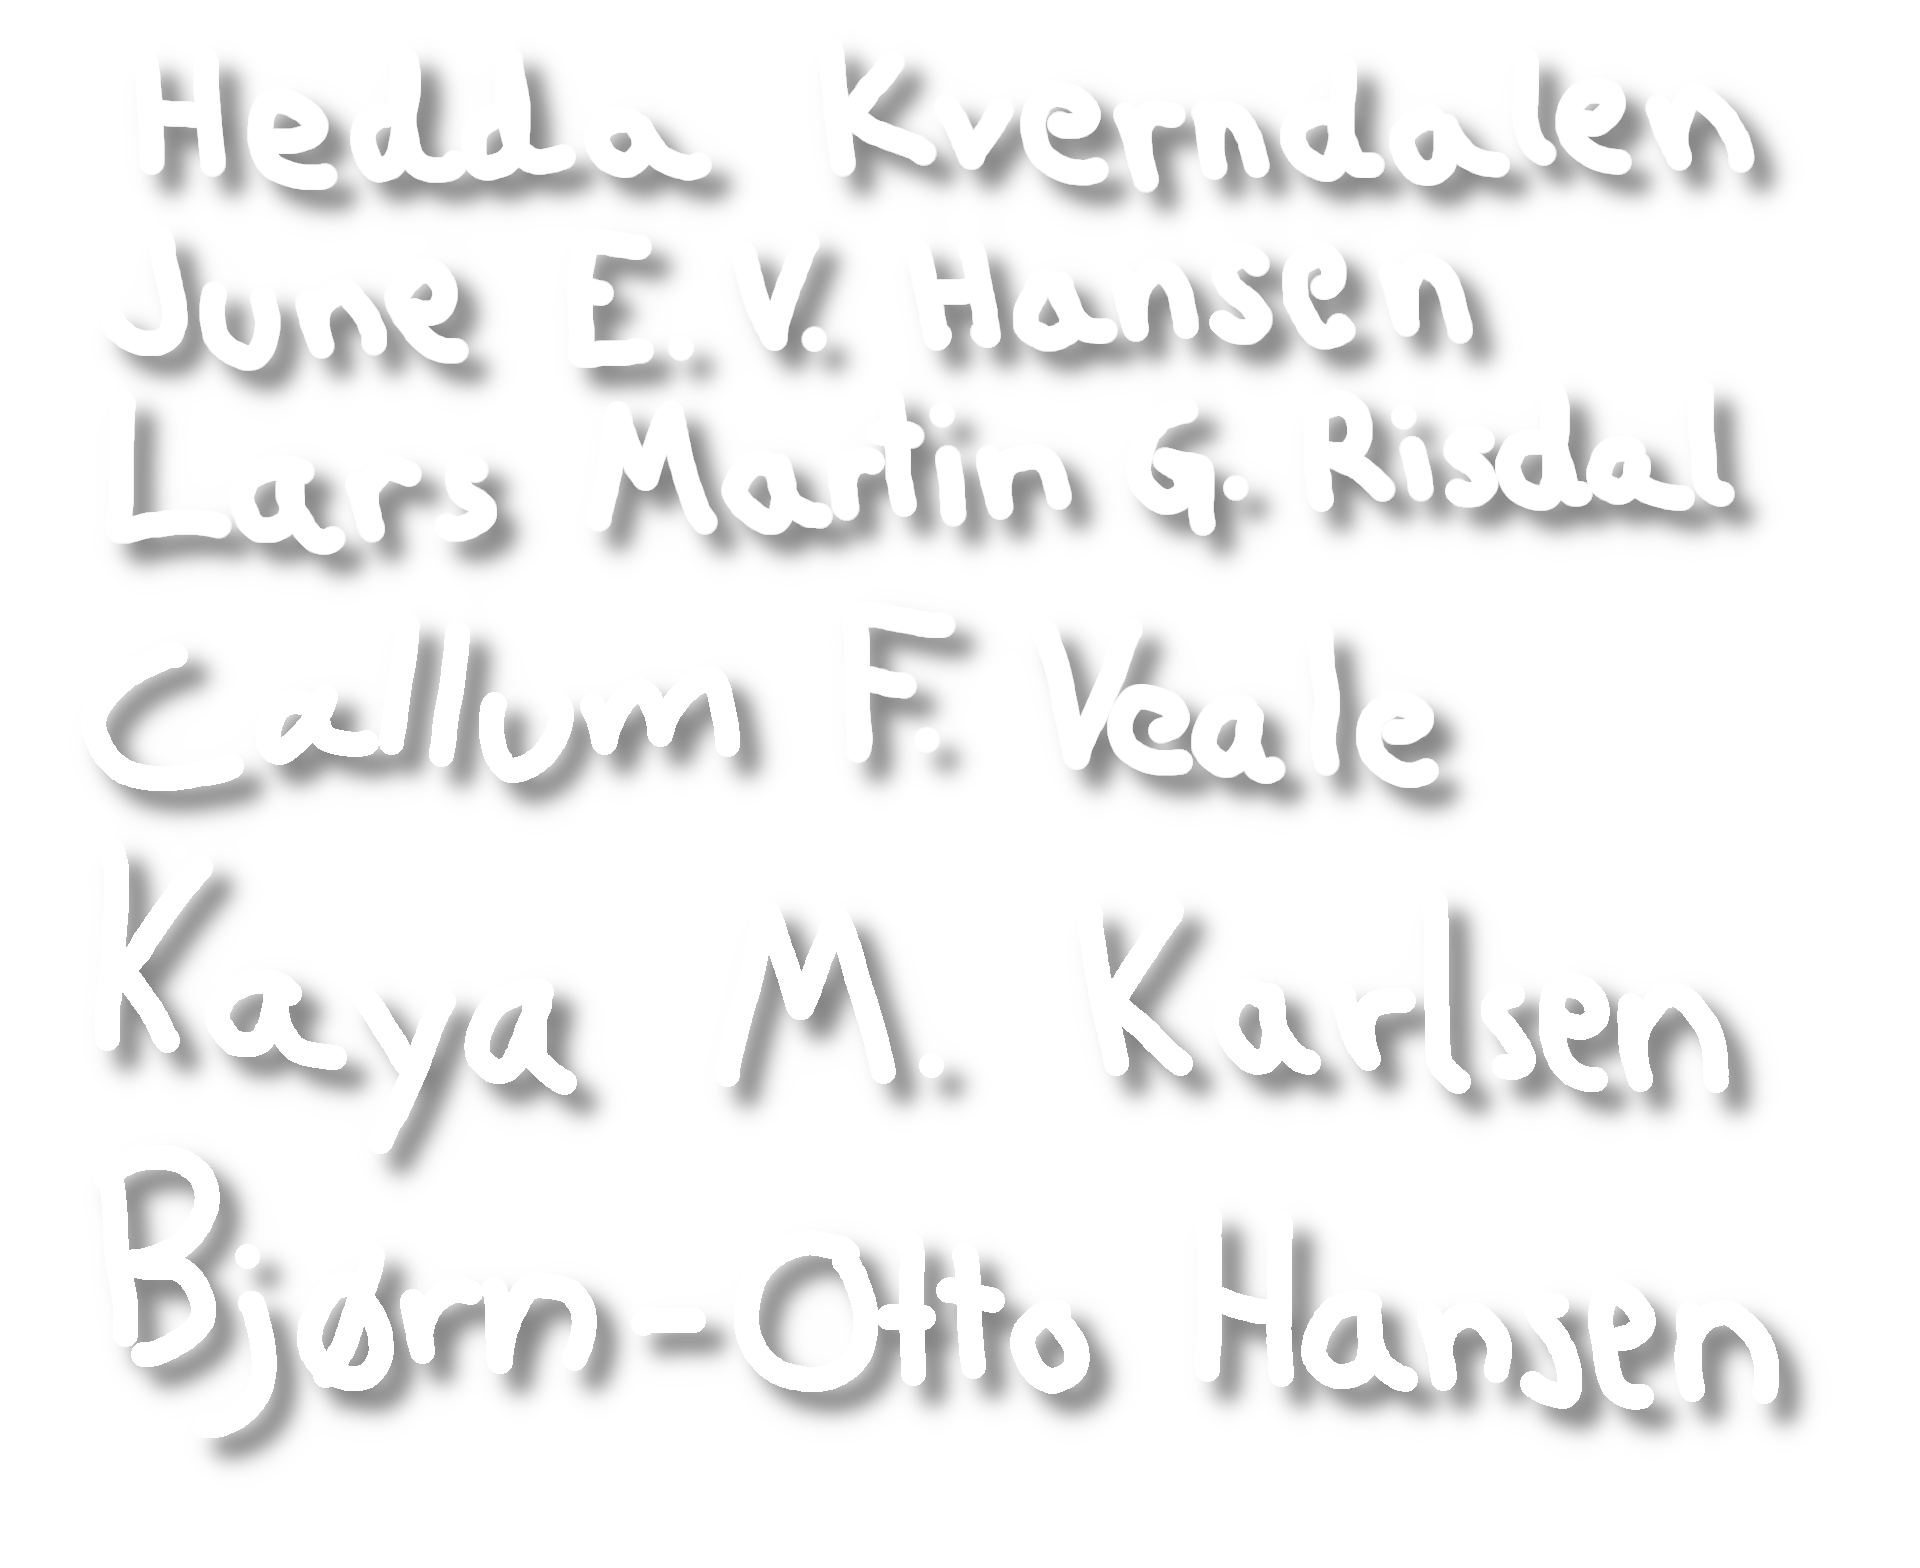 Hedda Kverndalen
June E. V. Hansen
Lars Martin G. Risdal
Callum F. Veale
Kaya M. Karlsen
Bjørn-Otto Hansen